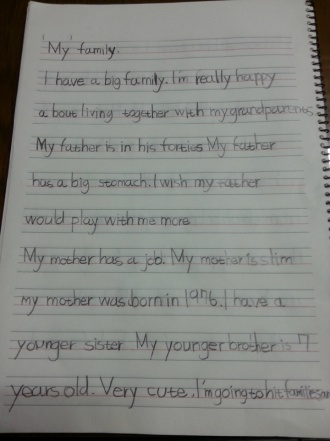 'My' family.
I have a big family. I'm really happy
a bout living together with my grandparents
My father is in his forties My father
has a big stomach. I wish my father
would play with me more
My mother has a job. My mother is slim
my mother was born in 1976. I have a
younger sister My younger brother is 7
years old. Very cute. I'm going to hit